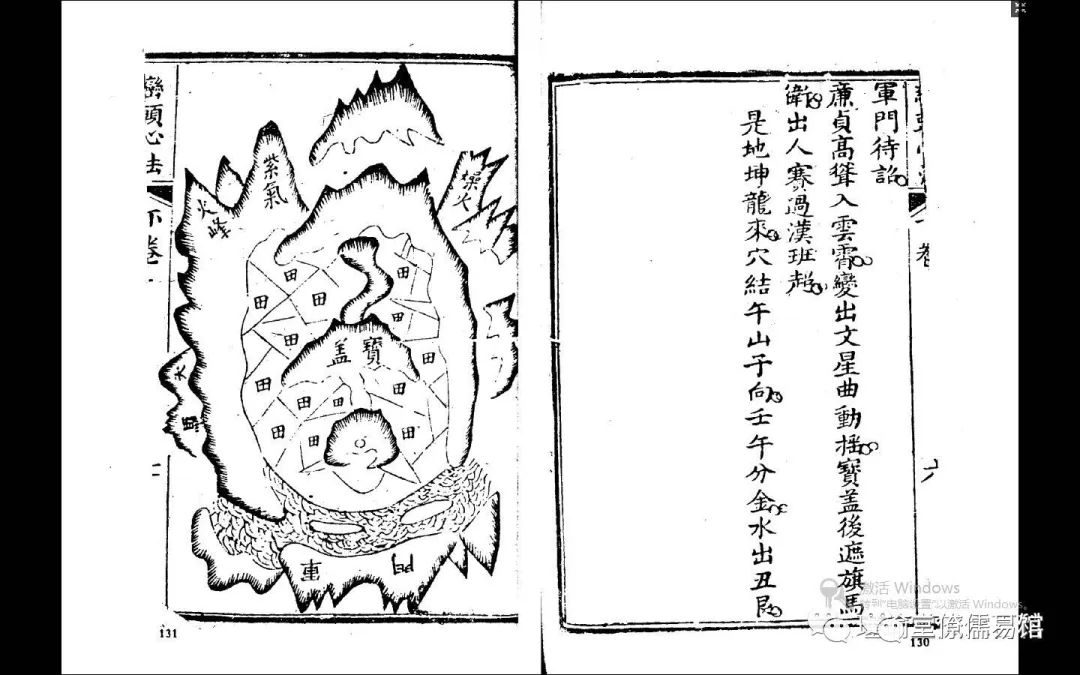 軍門待詔
廉貞高聳入雲霄變出文星曲動搖寶蓋後遮旗馬
衛出人賽過漢班超
是地坤龍來穴結午山子向壬午分金水出丑艮
130
巒頭心法
下卷
紫氣
火峰
燥火
田
田
田
田
田
田
田
田
寶蓋
田
田
田
田
田
田
天
馬
軍
門
131
激活 Windows
转到"电脑设置"以激活 Windows。
儒易馆